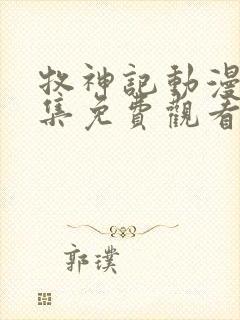 牧神記動漫
集免費觀看
郭璞